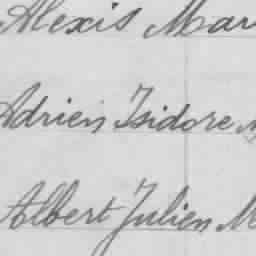 Alexis Mar
Adrien Isidore
Albert Julien M